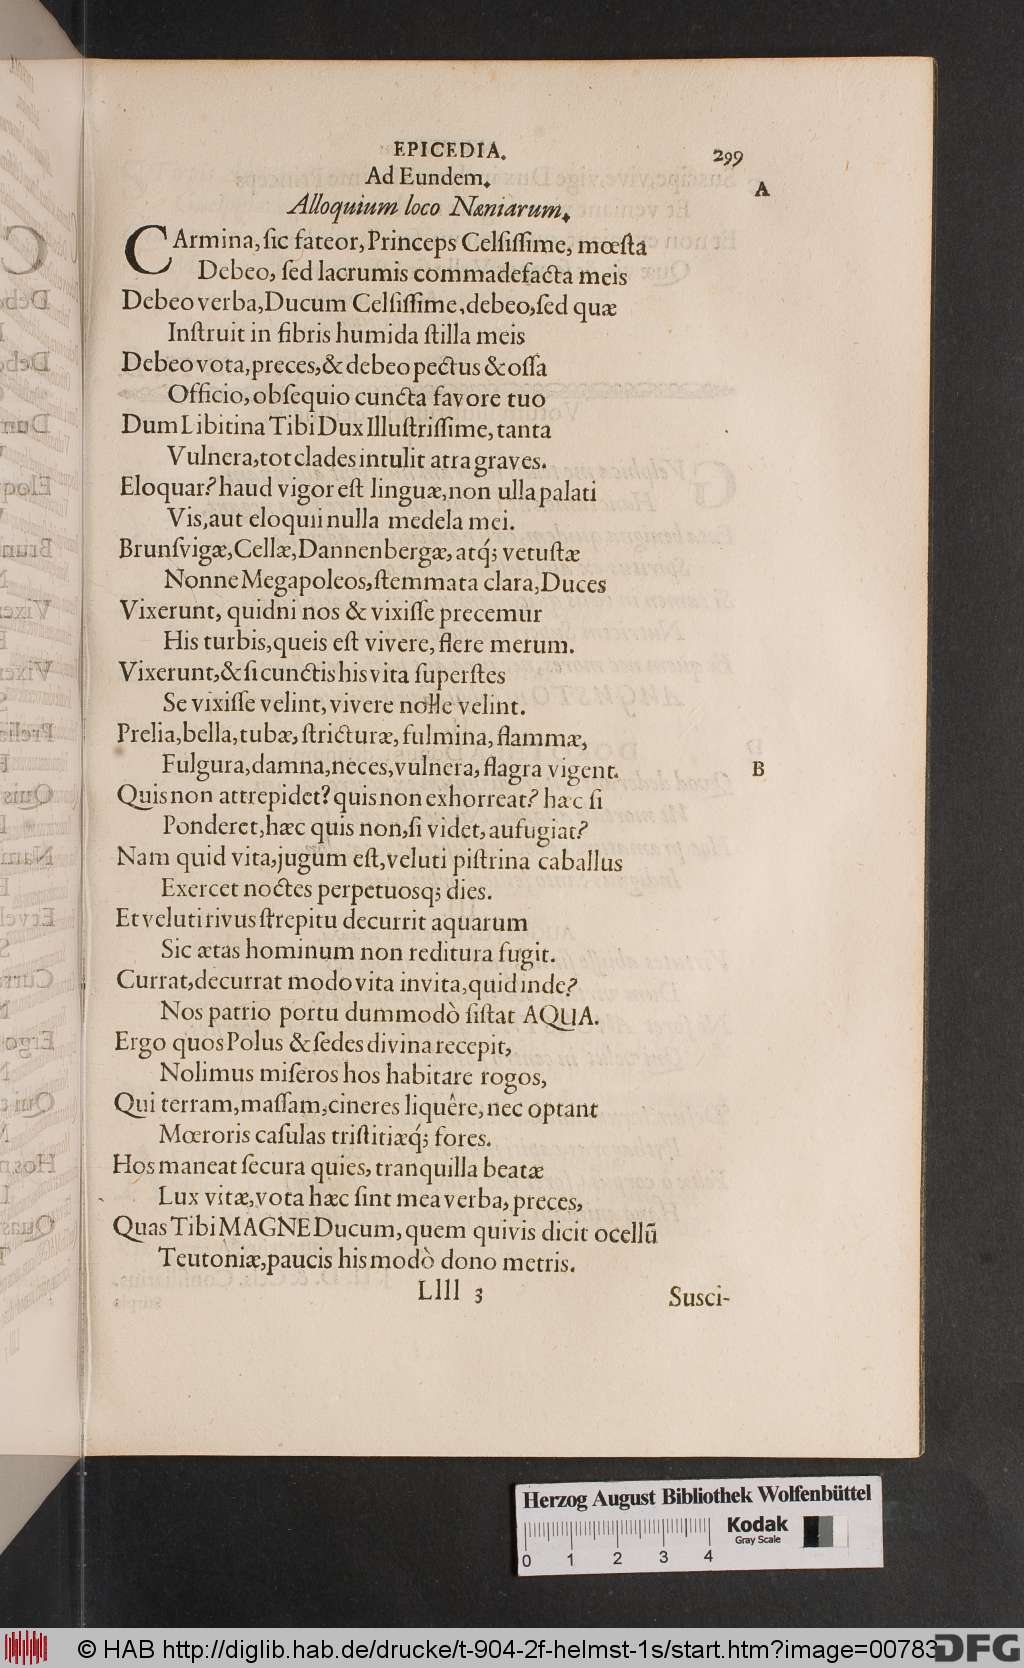 EPICEDIA. 299
Ad Eundem.
A
Alloquium loco Næniarum.
CArmina, ſic fateor, Princeps Celſiſſime, mœſta
Debeo, ſed lacrumis commadefacta meis
Debeo verba, Ducum Celſiſſime, debeo, ſed quæ
Inſtruit in fibris humida ſtilla meis
Debeo vota, preces, & debeo pectus & oſſa
Officio, obſequio cuncta favore tuo
Dum Libitina Tibi Dux Illuſtriſſime, tanta
Vulnera, tot clades intulit atra graves.
Eloquar? haud vigor eſt linguæ, non ulla palati
Vis, aut eloquii nulla medela mei.
Brunſvigæ, Cellæ, Dannenbergæ, atq́; vetuſtæ
Nonne Megapoleos, ſtemmata clara, Duces
Vixerunt, quidni nos & vixiſſe precemur
His turbis, queis eſt vivere, flere merum.
Vixerunt, & ſi cunctis his vita ſuperſtes
Se vixiſſe velint, vivere nolle velint.
Prelia, bella, tubæ, ſtricturæ, fulmina, flammæ,
Fulgura, damna, neces, vulnera, flagra vigent.
B
Quis non attrepidet? quis non exhorreat? hæc ſi
Ponderet, hæc quis non, ſi videt, aufugiat?
Nam quid vita, jugum eſt, veluti piſtrina caballus
Exercet noctes perpetuosq; dies.
Et veluti rivus ſtrepitu decurrit aquarum
Sic ætas hominum non reditura fugit.
Currat, decurrat modo vita invita, quid inde?
Nos patrio portu dummodò ſiſtat AQUA.
Ergo quos Polus & ſedes divina recepit,
Nolimus miſeros hos habitare rogos,
Qui terram, maſſam, cineres liquêre, nec optant
Mœroris caſulas triſtitiæq́; fores.
Hos maneat ſecura quies, tranquilla beatæ
Lux vitæ, vota hæc ſint mea verba, preces,
Quas Tibi MAGNE Ducum, quem quivis dicit ocellū
Teutoniæ, paucis his modò dono metris.
Llll 3 Susci-
Herzog August Bibliothek Wolfenbüttel
Kodak
Gray Scale
0 1 2 3 4
© HAB http://diglib.hab.de/drucke/t-904-2f-helmst-1s/start.htm?image=00783
DFG